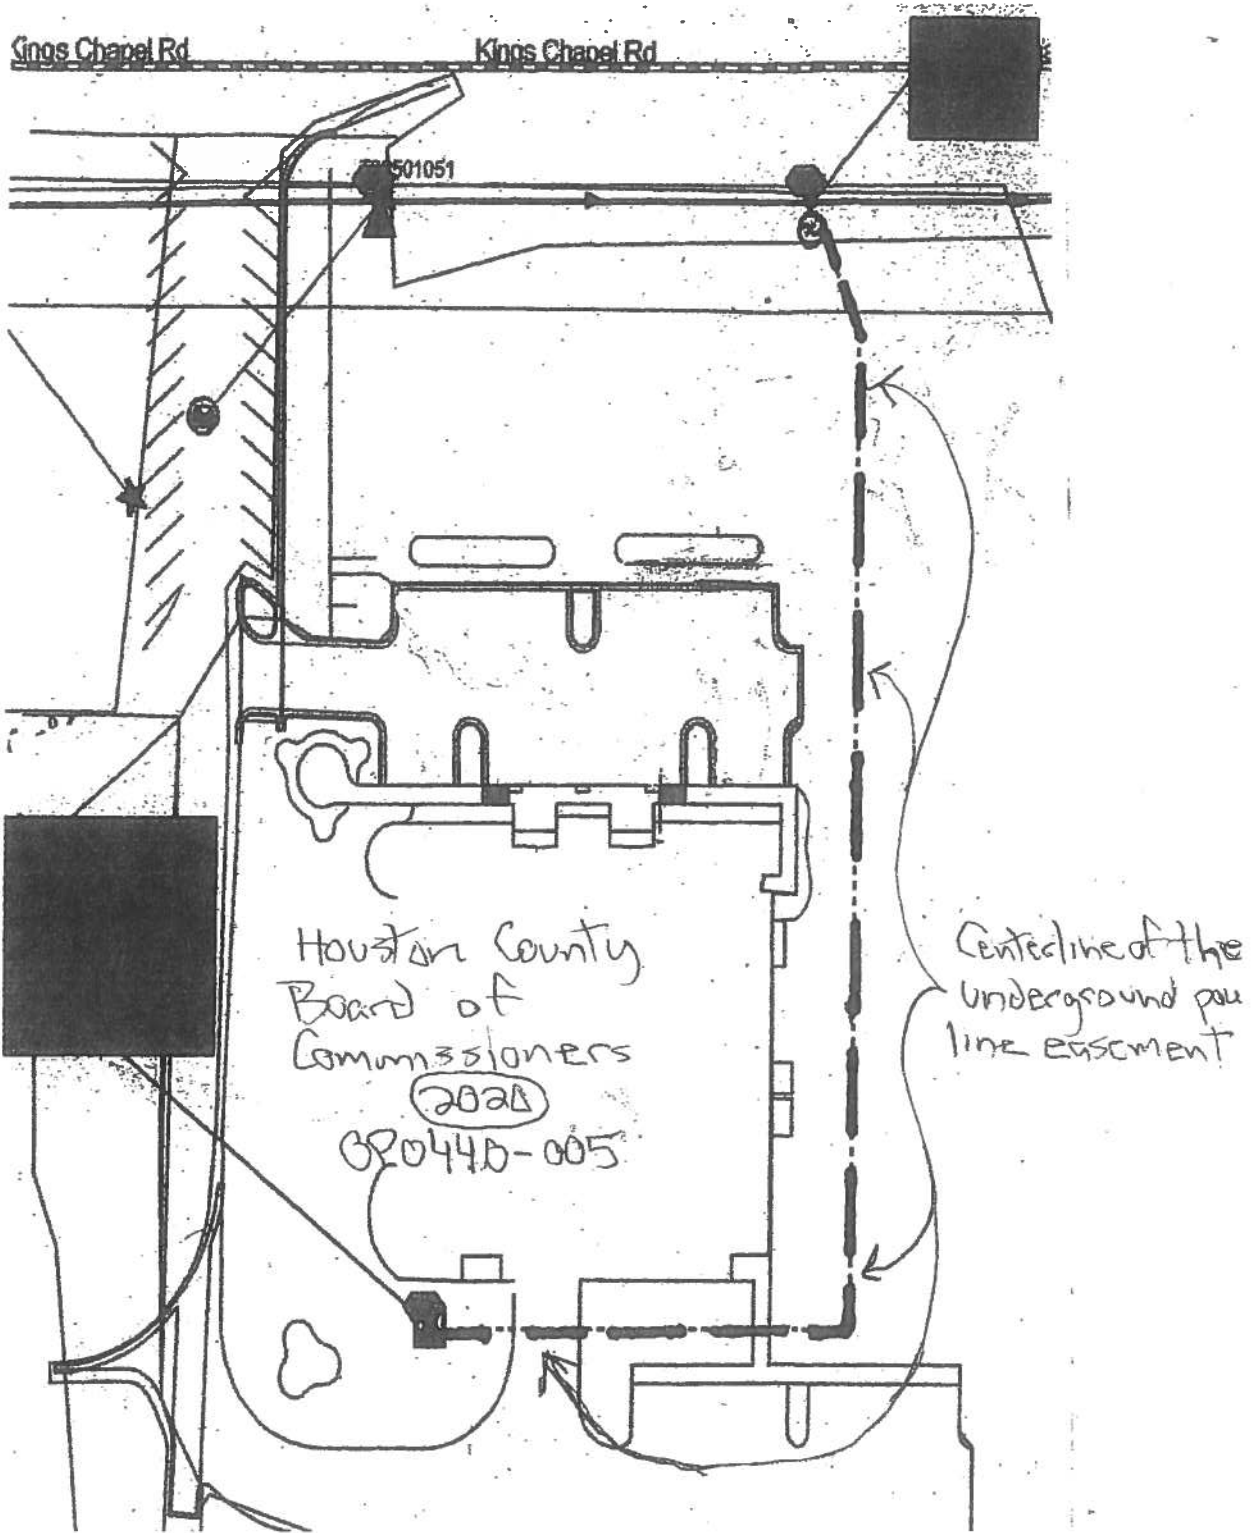 Kings Chapel Rd
Kings Chapel Rd
501051
Houston County
Board of
Commissioners
2020
0P0440-005
Centerline of the
underground pow
line easement